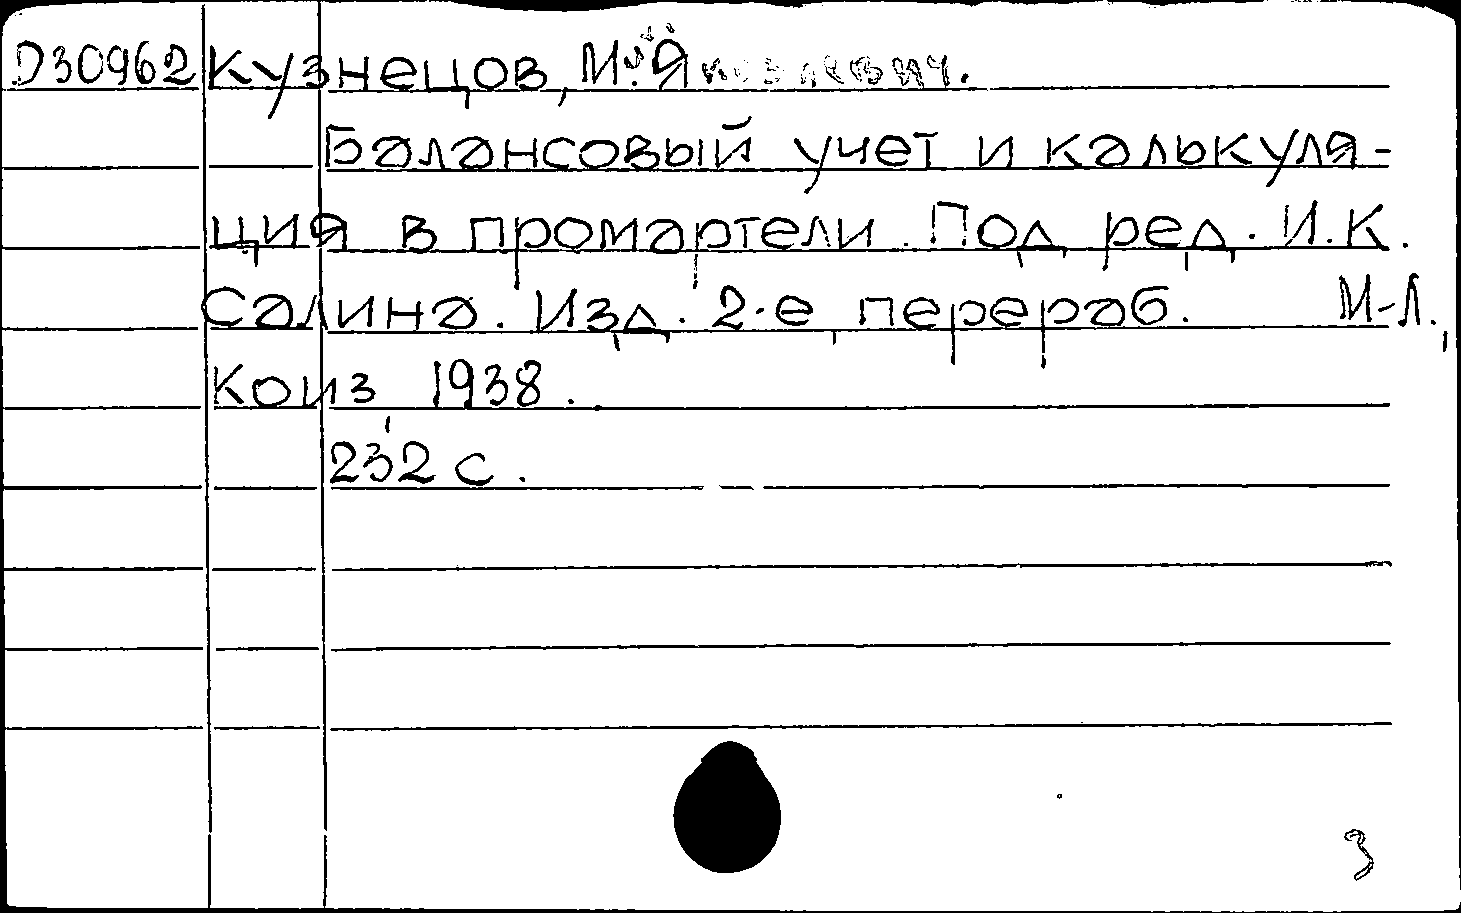 D30962 Кузнецов, М. Яковлевич.
Балансовый учет и калькуля-
ция в промартели. Под ред. И.К.
Салина. Изд. 2-е, перераб. М-Л.,
Коиз, 1938.
232 с.
3